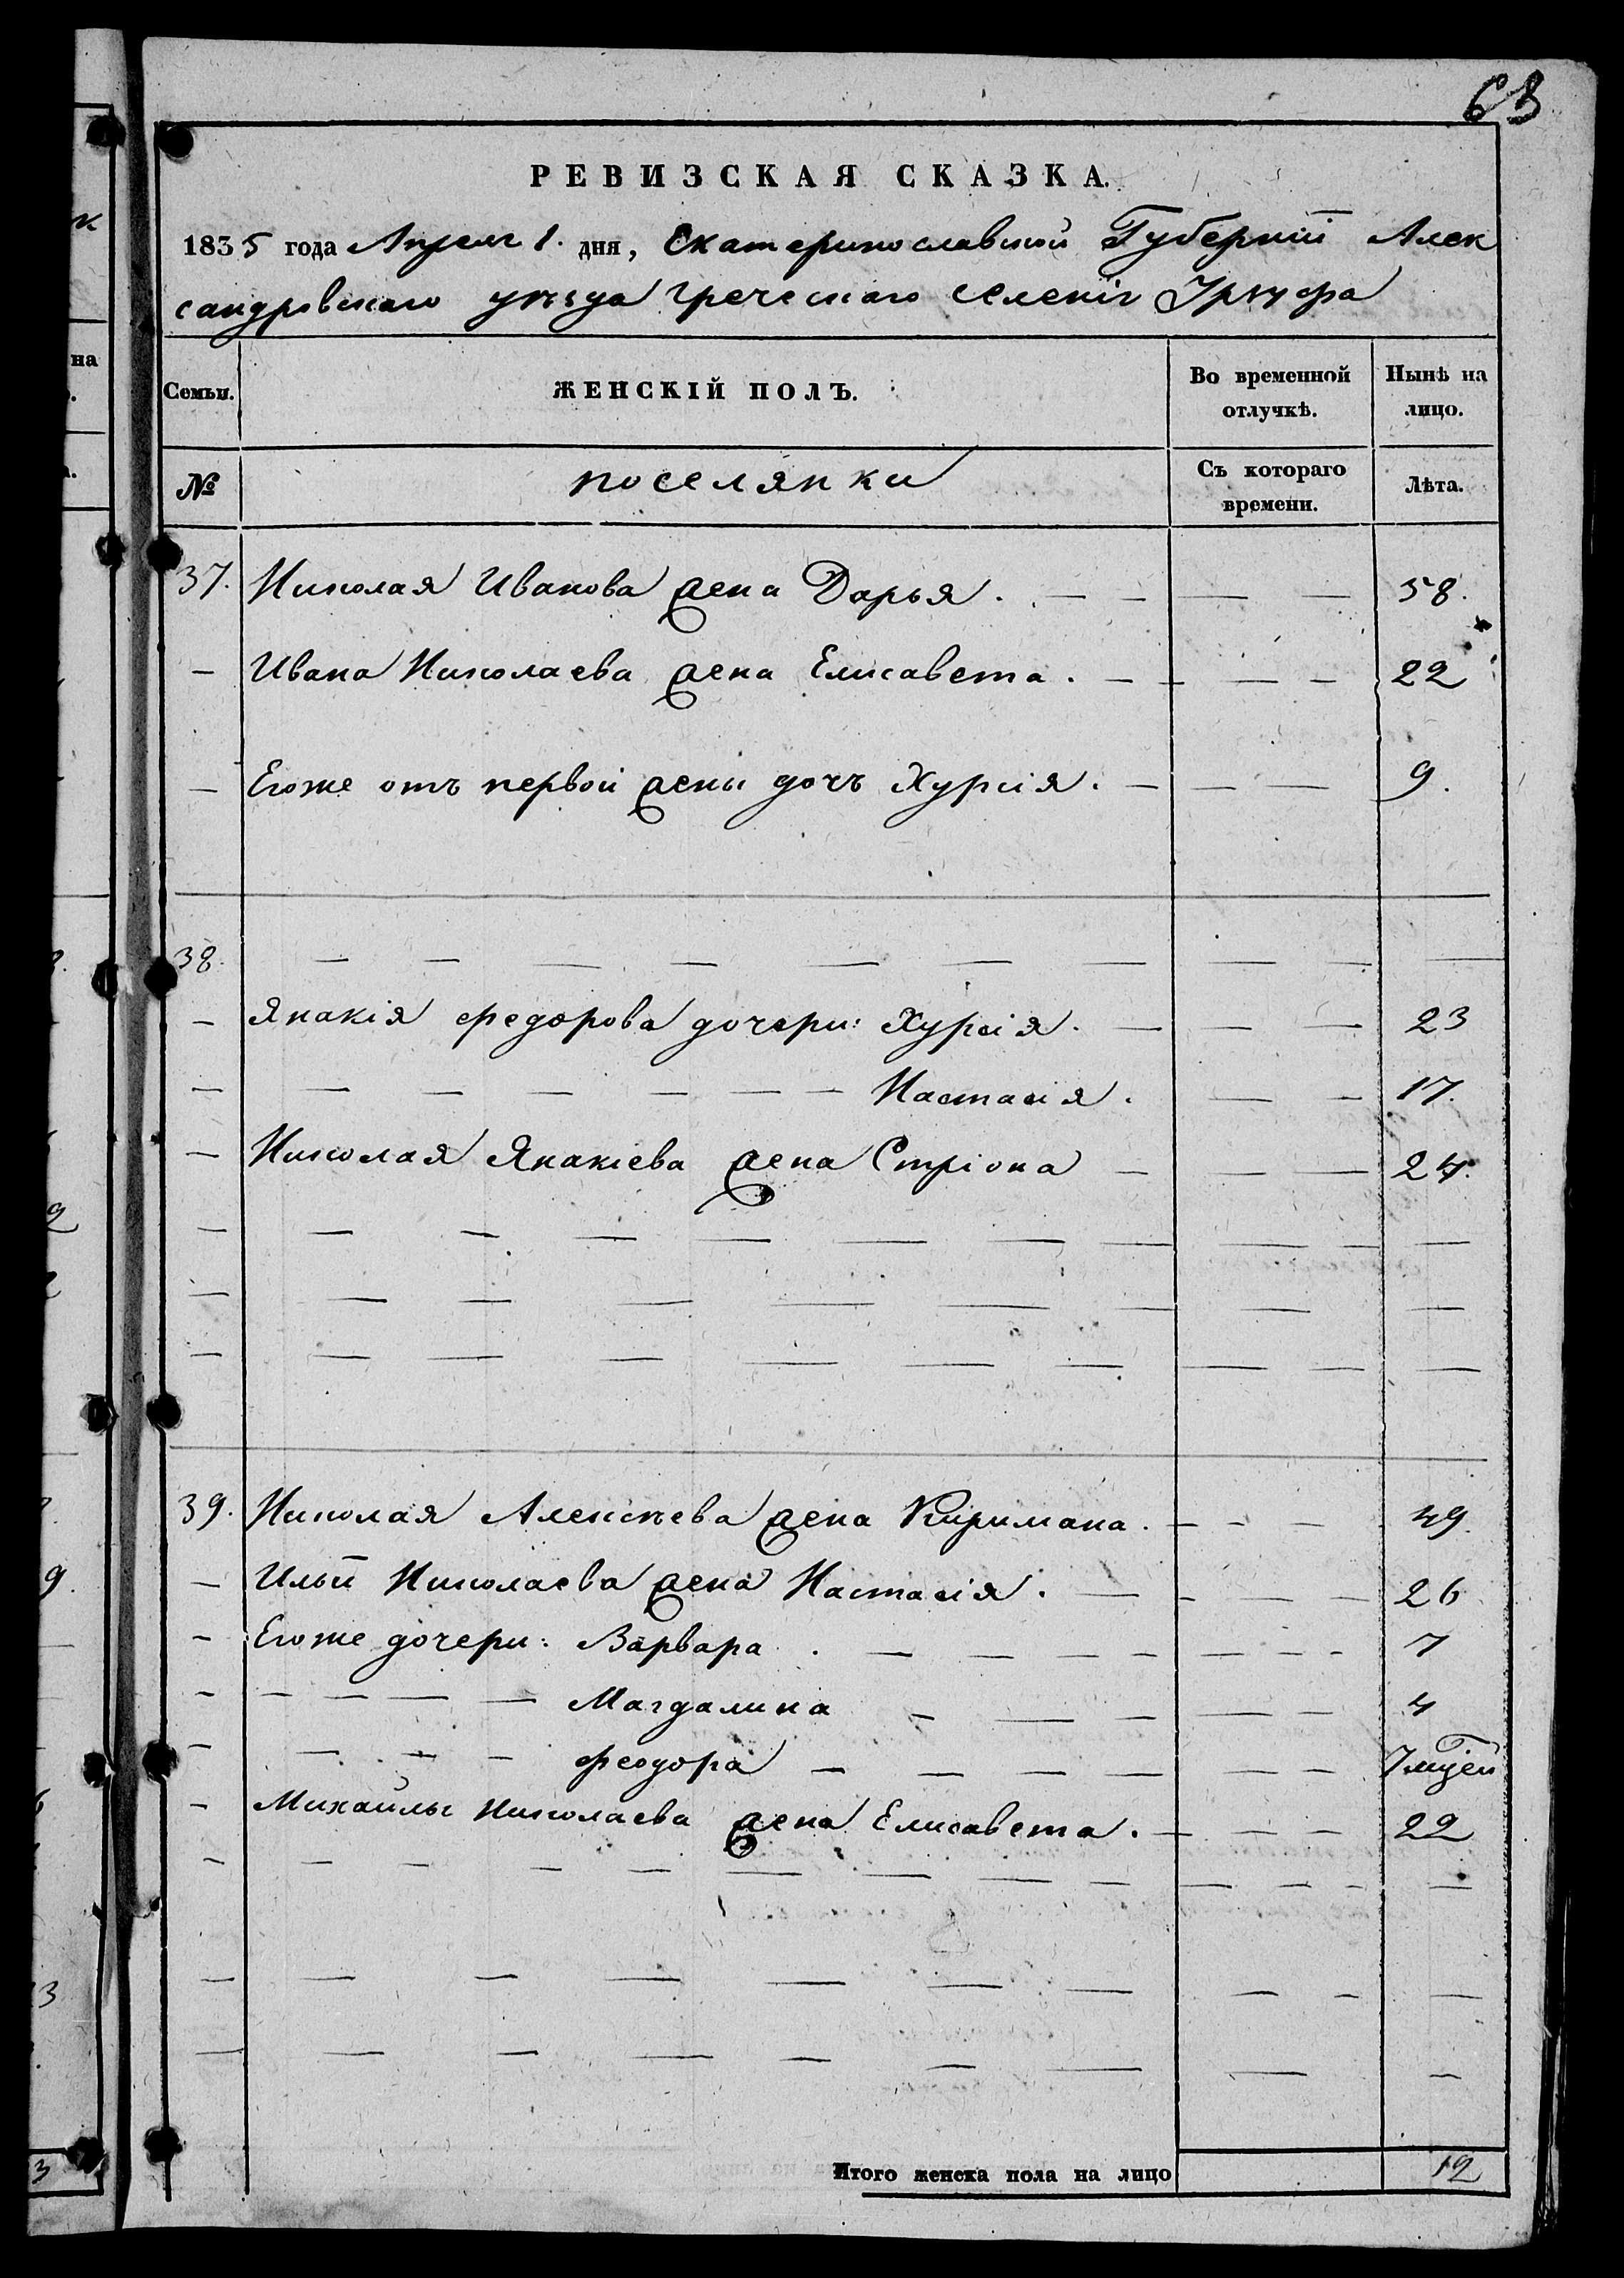 63
РЕВИЗСКАЯ СКАЗКА.
1835 года Апреля 1. дня, Екатеринославской Губернии Алек
сандровскаго уѣзда Греческаго селенія Урзуфа
Семьи. ЖЕНСКІЙ ПОЛЪ. Во временной отлучкѣ. Нынѣ на лицо.
№ поселянки Съ котораго времени. Лѣта.
37. Николая Иванова жена Дарья. — — — — 58.
— Ивана Николаева жена Елисавета. — — — — 22
— Егоже отъ первой жены дочь Хурсія. — — — 9.
38. — — — — — — — — — —
— Янакія Федорова дочери: Хурсія. — — — 23
— — — — — — — Настасія. — — 17.
— Николая Янакіева жена Стріона — — — 24.
— — — — — — — — — — —
— — — — — — — — —
— — — — — — — — — —
39. Николая Алексѣева жена Киримана. — — — 49.
— Ильи Николаева жена Настасія. — — — — 26
— Егоже дочери: Варвара. — — — — — — — — — 7
— — — — — Магдалина — — — — — — 4
— — — — Феодора — — — — — — 7 мцей
— Михаилы Николаева жена Елисавета. — — — 22
— — — — — — — — — — — — — —
— — — — — — — — — —
— — — — — — — — —
Итого женска пола на лицо 12